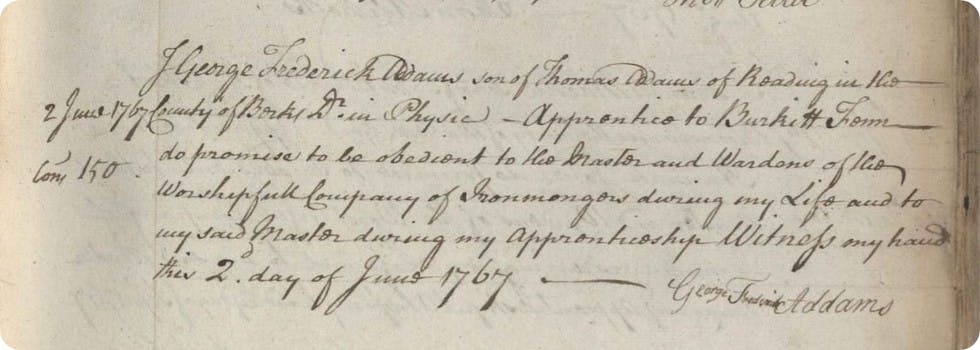 I George Frederick Adams son of Thomas Adams of Reading in the
2 June 1767 County of Berks Dr. in Physic - Apprentice to Burkitt Fenn
do promise to be obedient to the Master and Wardens of the
Con 150.
Worshipfull Company of Ironmongers during my Life and to
my said Master during my Apprenticeship Witness my hand
this 2d. day of June 1767
George Frederick Addams